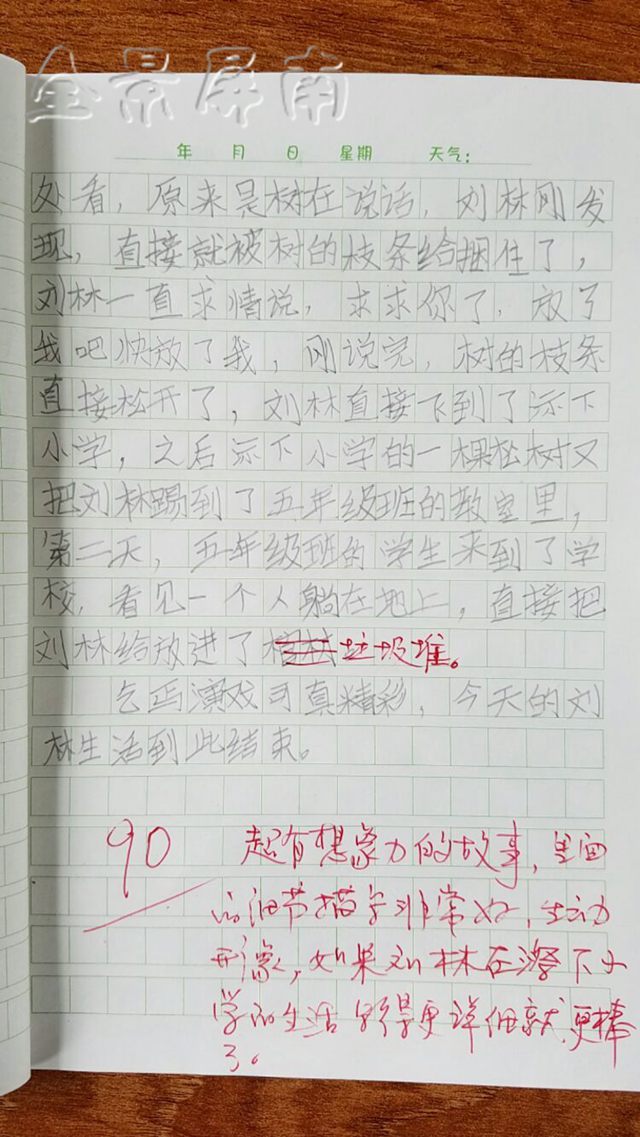 全景屏南
年 月 日 星期 天气：
处看，原来是树在说话，刘林刚发
现，直接就被树的枝条给捆住了，
刘林一直求情说，求求你了，放了
我吧快放了我，刚说完，树的枝条
直接松开了，刘林直接飞到了际下
小学，之后际下小学的一棵松树又
把刘林踢到了五年级班的教室里，
第二天，五年级班的学生来到了学
校，看见一个人躺在地上，直接把
刘林给放进了垃圾堆。
演戏可真精彩，今天的刘
林生活到此结束。
90
超有想象力的故事，里面
的细节描写非常好，生动
形象，如果刘林在潦下小
学的生活写得更详细就更棒
了。